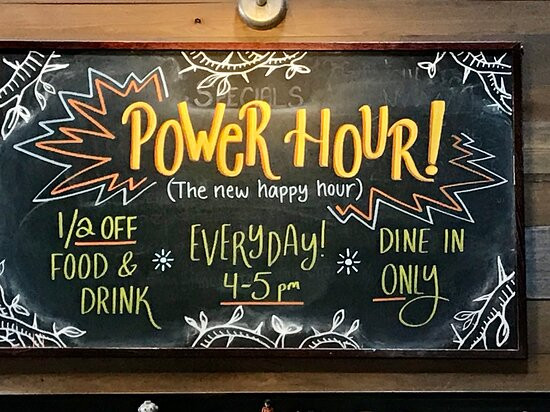 SPECIALS
POWER HOUR!
(The new happy hour)
1/2 OFF
FOOD &
DRINK
EVERYDAY!
4-5 pm
DINE IN
ONLY